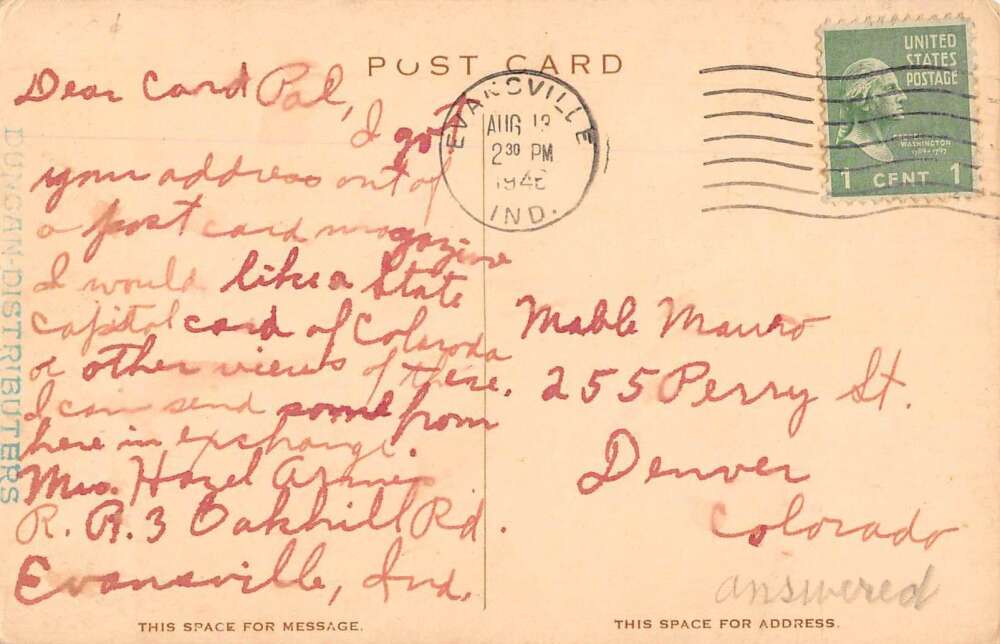 POST CARD
Dear Card Pal,
I got
your address out of
a post card magazine
I would like a State
Capitol card of Colorado
or other views of these.
I can send some from
here in exchange.
Mrs. Hazel
R. R. 3 Oakhill Rd.
Evansville, Ind.
THIS SPACE FOR MESSAGE.
DUNCAN-DISTRIBUTERS
EVANSVILLE
AUG 13
2 30 PM
194
IND.
UNITED
STATES
POSTAGE
WASHINGTON
1789-1797
1 CENT 1
Mable Mauro
255 Perry St.
Denver
Colorado
answered
THIS SPACE FOR ADDRESS.